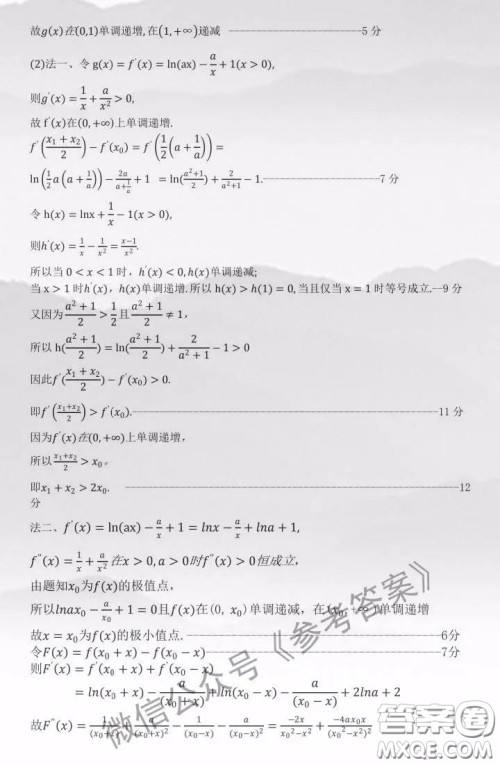 故g(x)在(0,1)单调递增,在(1,+∞)递减 ------5 分
(2)法一、令 g(x) = f′(x) = ln(ax) − a/x + 1(x > 0),
则g′(x) = 1/x + a/x² > 0,
故 f′(x)在(0,+∞)上单调递增.
f′((x₁+x₂)/2) − f′(x₀) = f′(1/2(a + 1/a)) =
ln(1/2 a(a + 1/a)) − 2a/(a+1/a) + 1 = ln((a²+1)/2) + 2/(a²+1) − 1.------7 分
令 h(x) = lnx + 1/x − 1(x > 0),
则h′(x) = 1/x − 1/x² = (x−1)/x².
所以当 0 < x < 1 时，h′(x) < 0, h(x)单调递减;
当 x > 1 时h′(x)，h(x)单调递增.所以 h(x) > h(1) = 0, 当且仅当 x = 1 时等号成立.--9 分
又因为 (a²+1)/2 > 1/2 且 (a²+1)/2 ≠ 1,
所以 h((a²+1)/2) = ln((a²+1)/2) + 2/(a²+1) − 1 > 0
因此f′((x₁+x₂)/2) − f′(x₀) > 0.
即f′((x₁+x₂)/2) > f′(x₀).------11 分
因为f′(x)在(0,+∞)上单调递增，
所以(x₁+x₂)/2 > x₀。
即x₁ + x₂ > 2x₀. ------12
分
法二、f′(x) = ln(ax) − a/x + 1 = lnx − a/x + lna + 1,
f″(x) = 1/x + a/x² 在x > 0, a > 0时f″(x) > 0恒成立，
由题知x₀为f(x)的极值点，
所以lnax₀ − a/x₀ + 1 = 0且f(x)在(0, x₀)单调递减，在(x₀,+∞)单调递增
故x = x₀为f(x)的极小值点. ------6分
令F(x) = f(x₀ + x) − f(x₀ − x) ------7分
则F′(x) = f′(x₀ + x) + f′(x₀ − x)
= ln(x₀ + x) − a/(x₀ + x) + ln(x₀ − x) − a/(x₀ − x) + 2lna + 2
故F″(x) = 1/(x₀+x) + a/(x₀+x)² − 1/(x₀−x) − a/(x₀−x)² = −2x/(x₀²−x²) + −4ax₀x/(x₀²−x²)²
微信公众号《参考答案》
答案圈
MXQE.COM